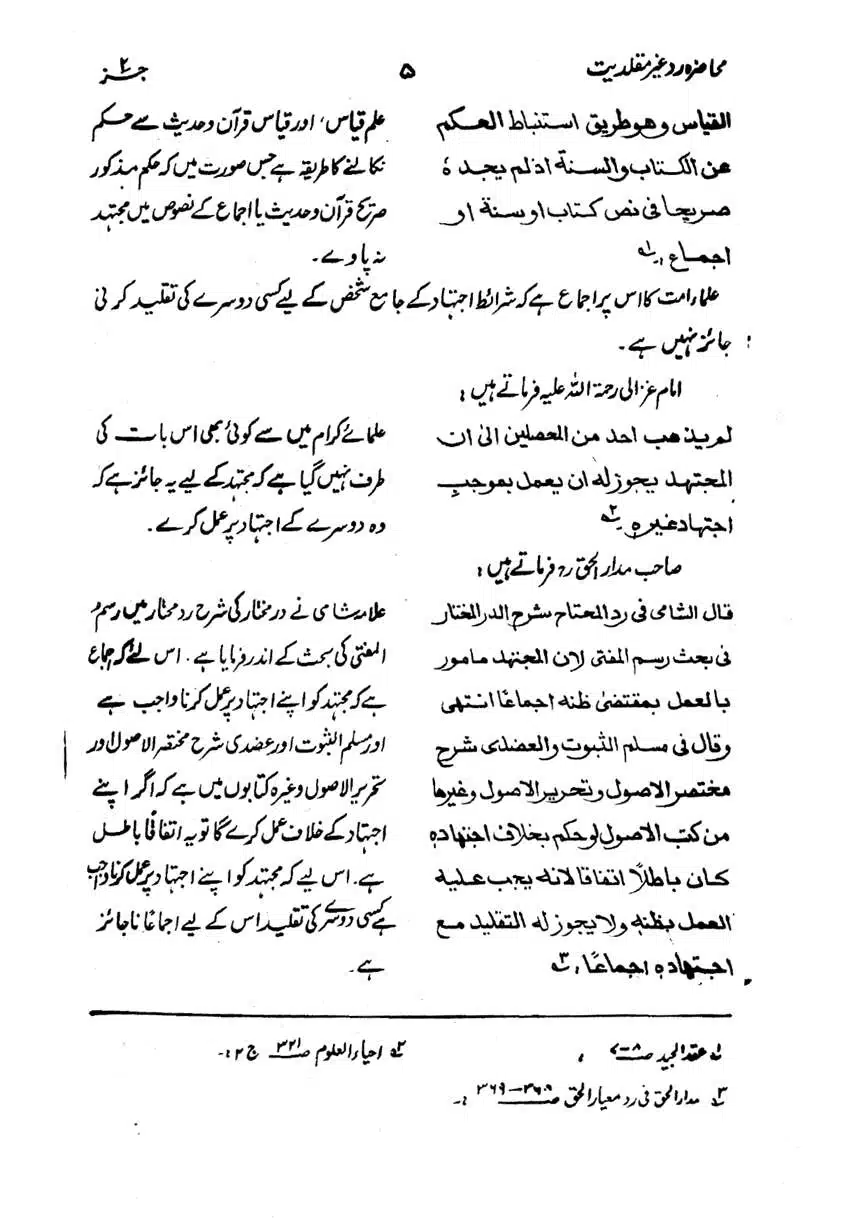 محاضرہ رد غیر مقلدیت ۵ جز ۲
القیاس وهو طریق استنباط الحکم
عن الکتاب والسنة اذ لم یجدہ
صریحا فی نص کتاب او سنة او
اجماع ۱؎
علم قیاس، اور قیاس قرآن و حدیث سے حکم
نکالنے کا طریقہ ہے جس صورت میں کہ حکم مذکور
صریح قرآن و حدیث یا اجماع کے نصوص میں مجتہد
نہ پاوے۔
علماء امت کا اس پر اجماع ہے کہ شرائط اجتہاد کے جامع شخص کے لیے کسی دوسرے کی تقلید کرنی
جائز نہیں ہے۔
امام غزالی رحمۃ اللہ علیہ فرماتے ہیں:
لم یذهب احد من المحصلین الی ان
المجتهد یجوز له ان یعمل بموجب
اجتهاد غیره ۲؎
علمائے کرام میں سے کوئی بھی اس بات کی
طرف نہیں گیا ہے کہ مجتہد کے لیے یہ جائز ہے کہ
وہ دوسرے کے اجتہاد پر عمل کرے۔
صاحب مدار الحق رح فرماتے ہیں:
قال الشامی فی رد المحتاج شرح الدر المختار
فی بحث رسم المفتی لان المجتهد مامور
بالعمل بمقتضیٰ ظنه اجماعًا انتهی
وقال فی مسلم الثبوت والعضدی شرح
مختصر الاصول وتحریر الاصول وغیرها
من کتب الاصول لو حکم بخلاف اجتهاده
کان باطلًا اتفاقا لانه یجب علیه
العمل بظنه ولا یجوز له التقلید مع
اجتهاده اجماعًا، ۳؎
علامہ شامی نے در مختار کی شرح رد محتار میں رسم
المفتی کی بحث کے اندر فرمایا ہے۔ اس لئے کہ اجماع
ہے کہ مجتہد کو اپنے اجتہاد پر عمل کرنا واجب ہے
اور مسلم الثبوت اور عضدی شرح مختصر الاصول اور
تحریر الاصول وغیرہ کتابوں میں ہے کہ اگر اپنے
اجتہاد کے خلاف عمل کرے گا تو یہ اتفاقًا باطل
ہے۔ اس لیے کہ مجتہد کو اپنے اجتہاد پر عمل کرنا واجب
ہے کسی دوسرے کی تقلید اس کے لیے اجماعًا ناجائز
ہے۔
۱؎ عقد الجید ص ۲؎ احیاء العلوم ص ۳۲۱ ج ۲۔
۳؎ مدار الحق فی رد معیار الحق ص ۳۶۹